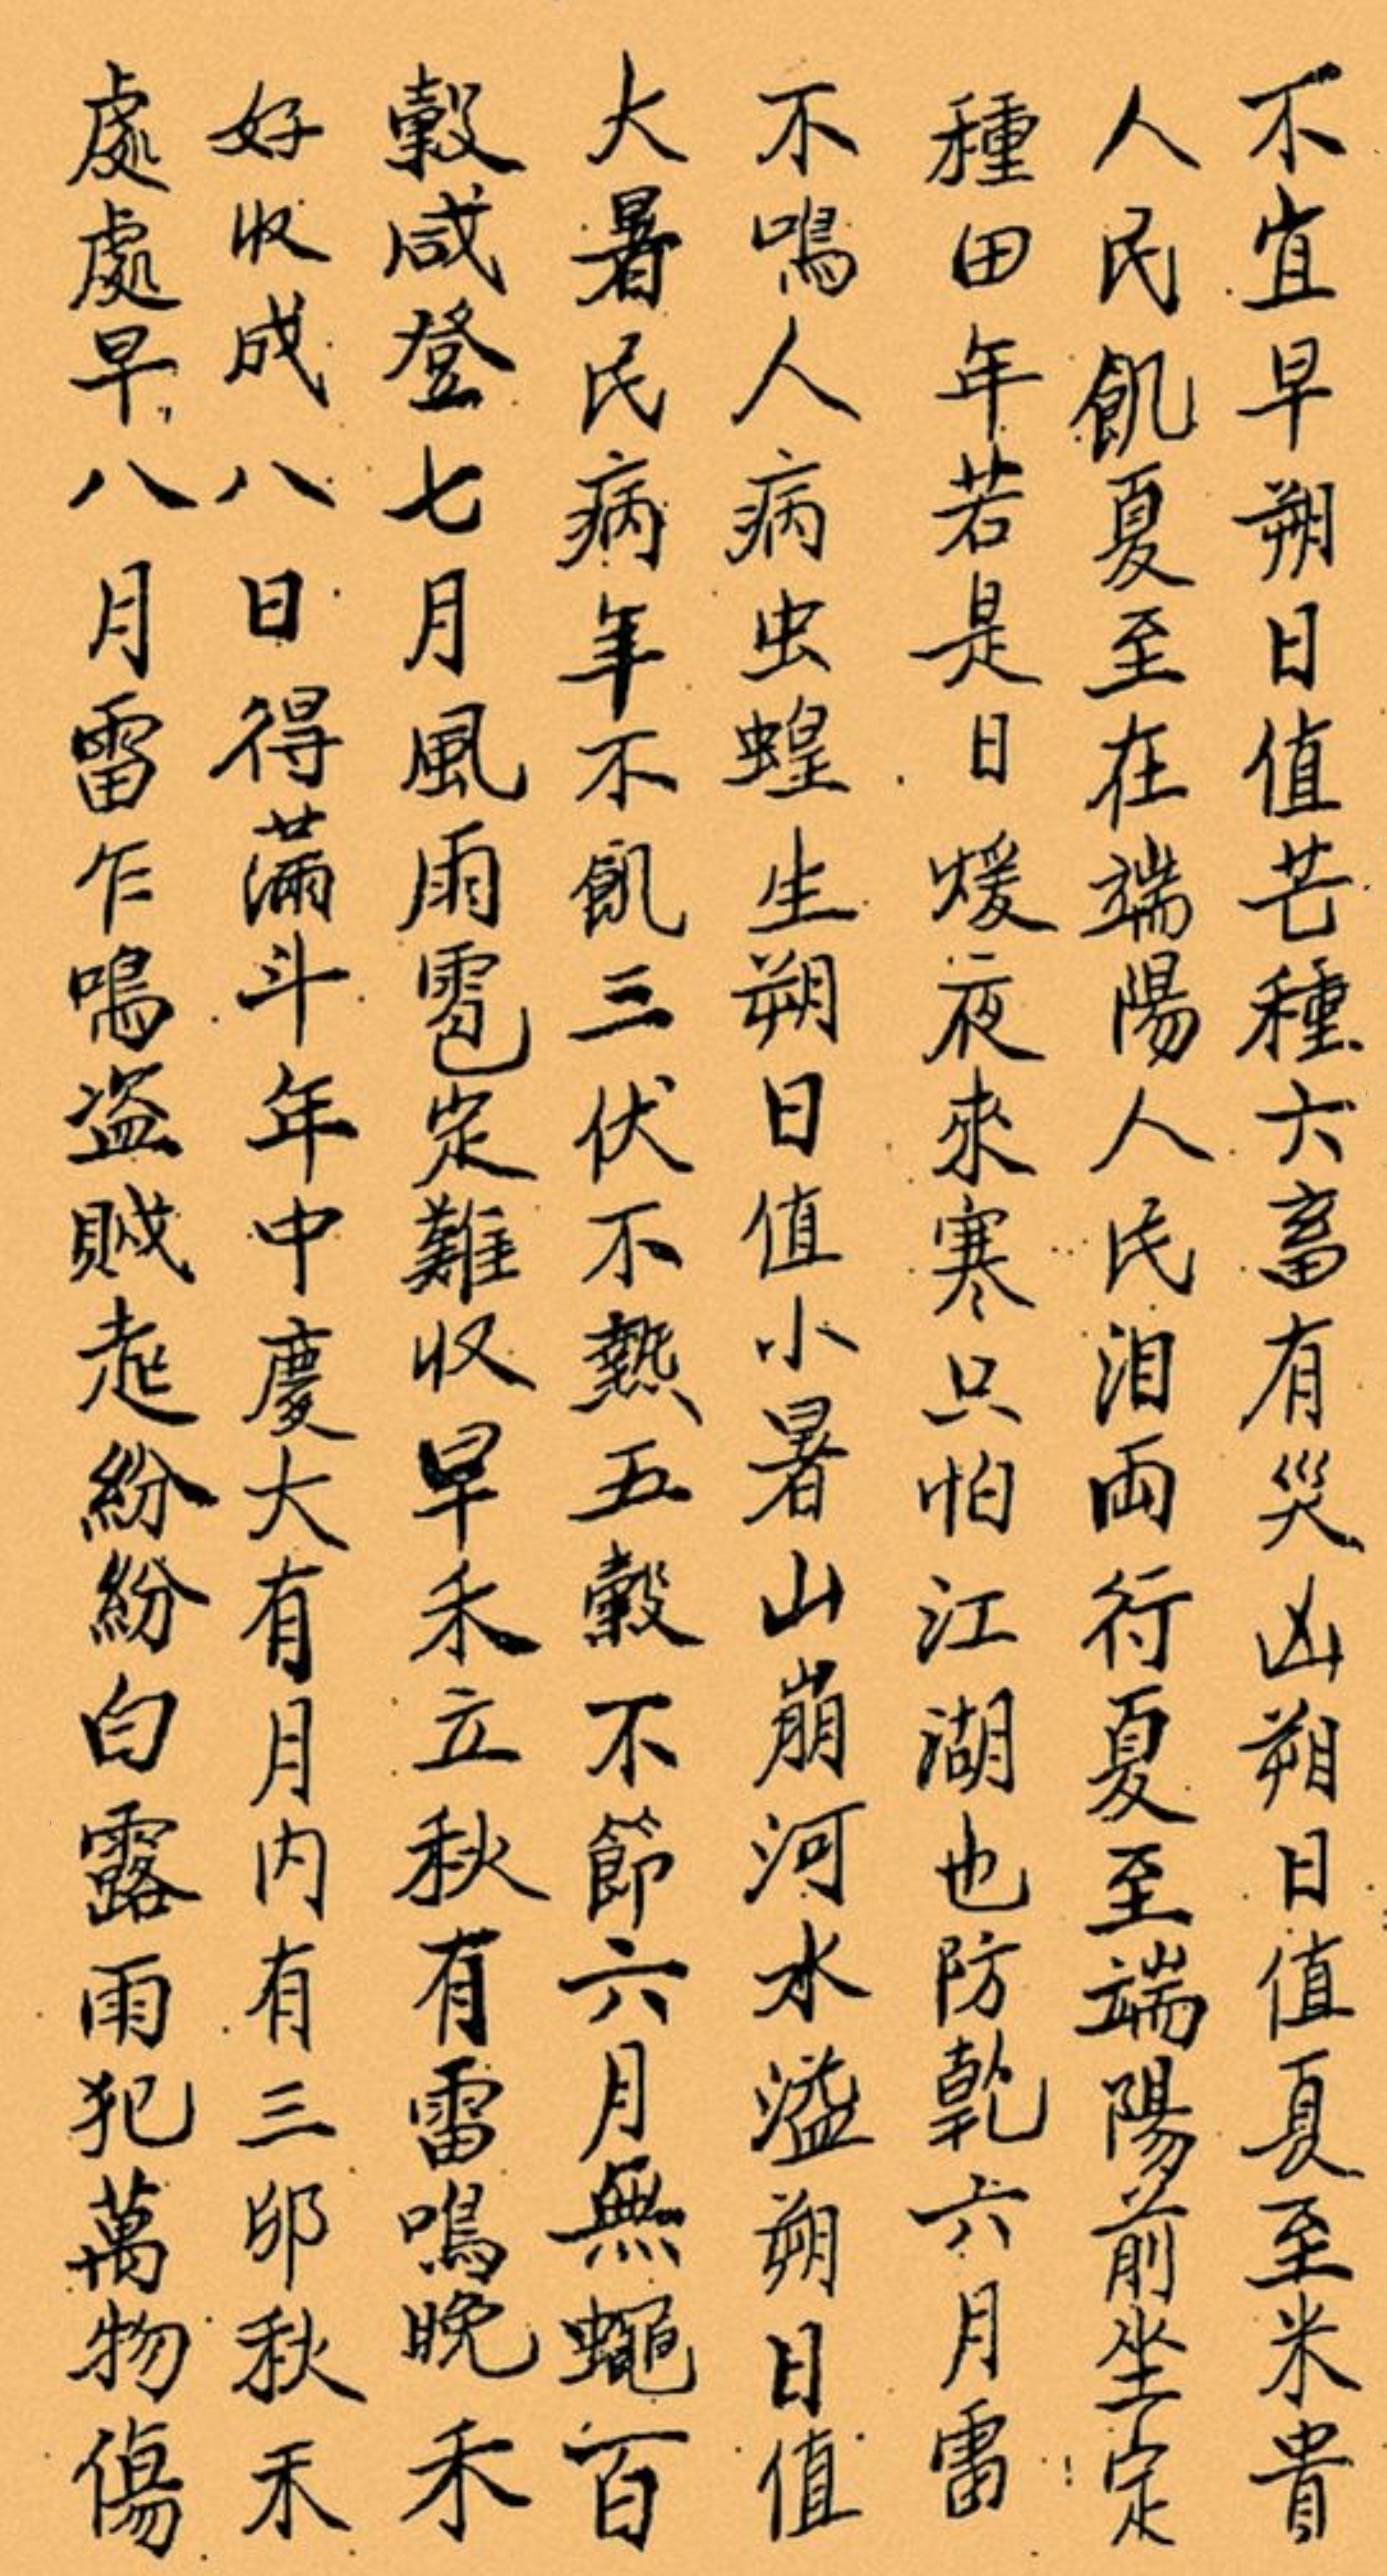 不宜早朔日值芒種六畜有災凶朔日值夏至米貴
人民飢夏至在端陽人民泪両行夏至端陽前坐定
種田年若是日煖夜來寒只怕江湖也防乾六月雷
不鳴人病虫蝗生朔日值小暑山崩河水溢朔日值
大暑民病年不飢三伏不熱五穀不節六月無蠅百
穀咸登七月風雨雹定難收早禾立秋有雷鳴晚禾
好收成八日得滿斗年中慶大有月内有三卯秋禾
處處早八月雷乍鳴盗賊起紛紛白露雨犯萬物傷